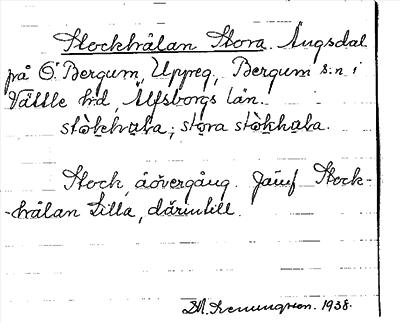 Stockhålan Stora. Ängsdal
på Ö. Bergum, Uppeg, Bergum s:n i
Vättle hd, Älfsborgs län.
stòkhala; stora stòkhala.
Stock, åövergång. Jämf Stock-
-hålan Lilla, därintill.
1938.